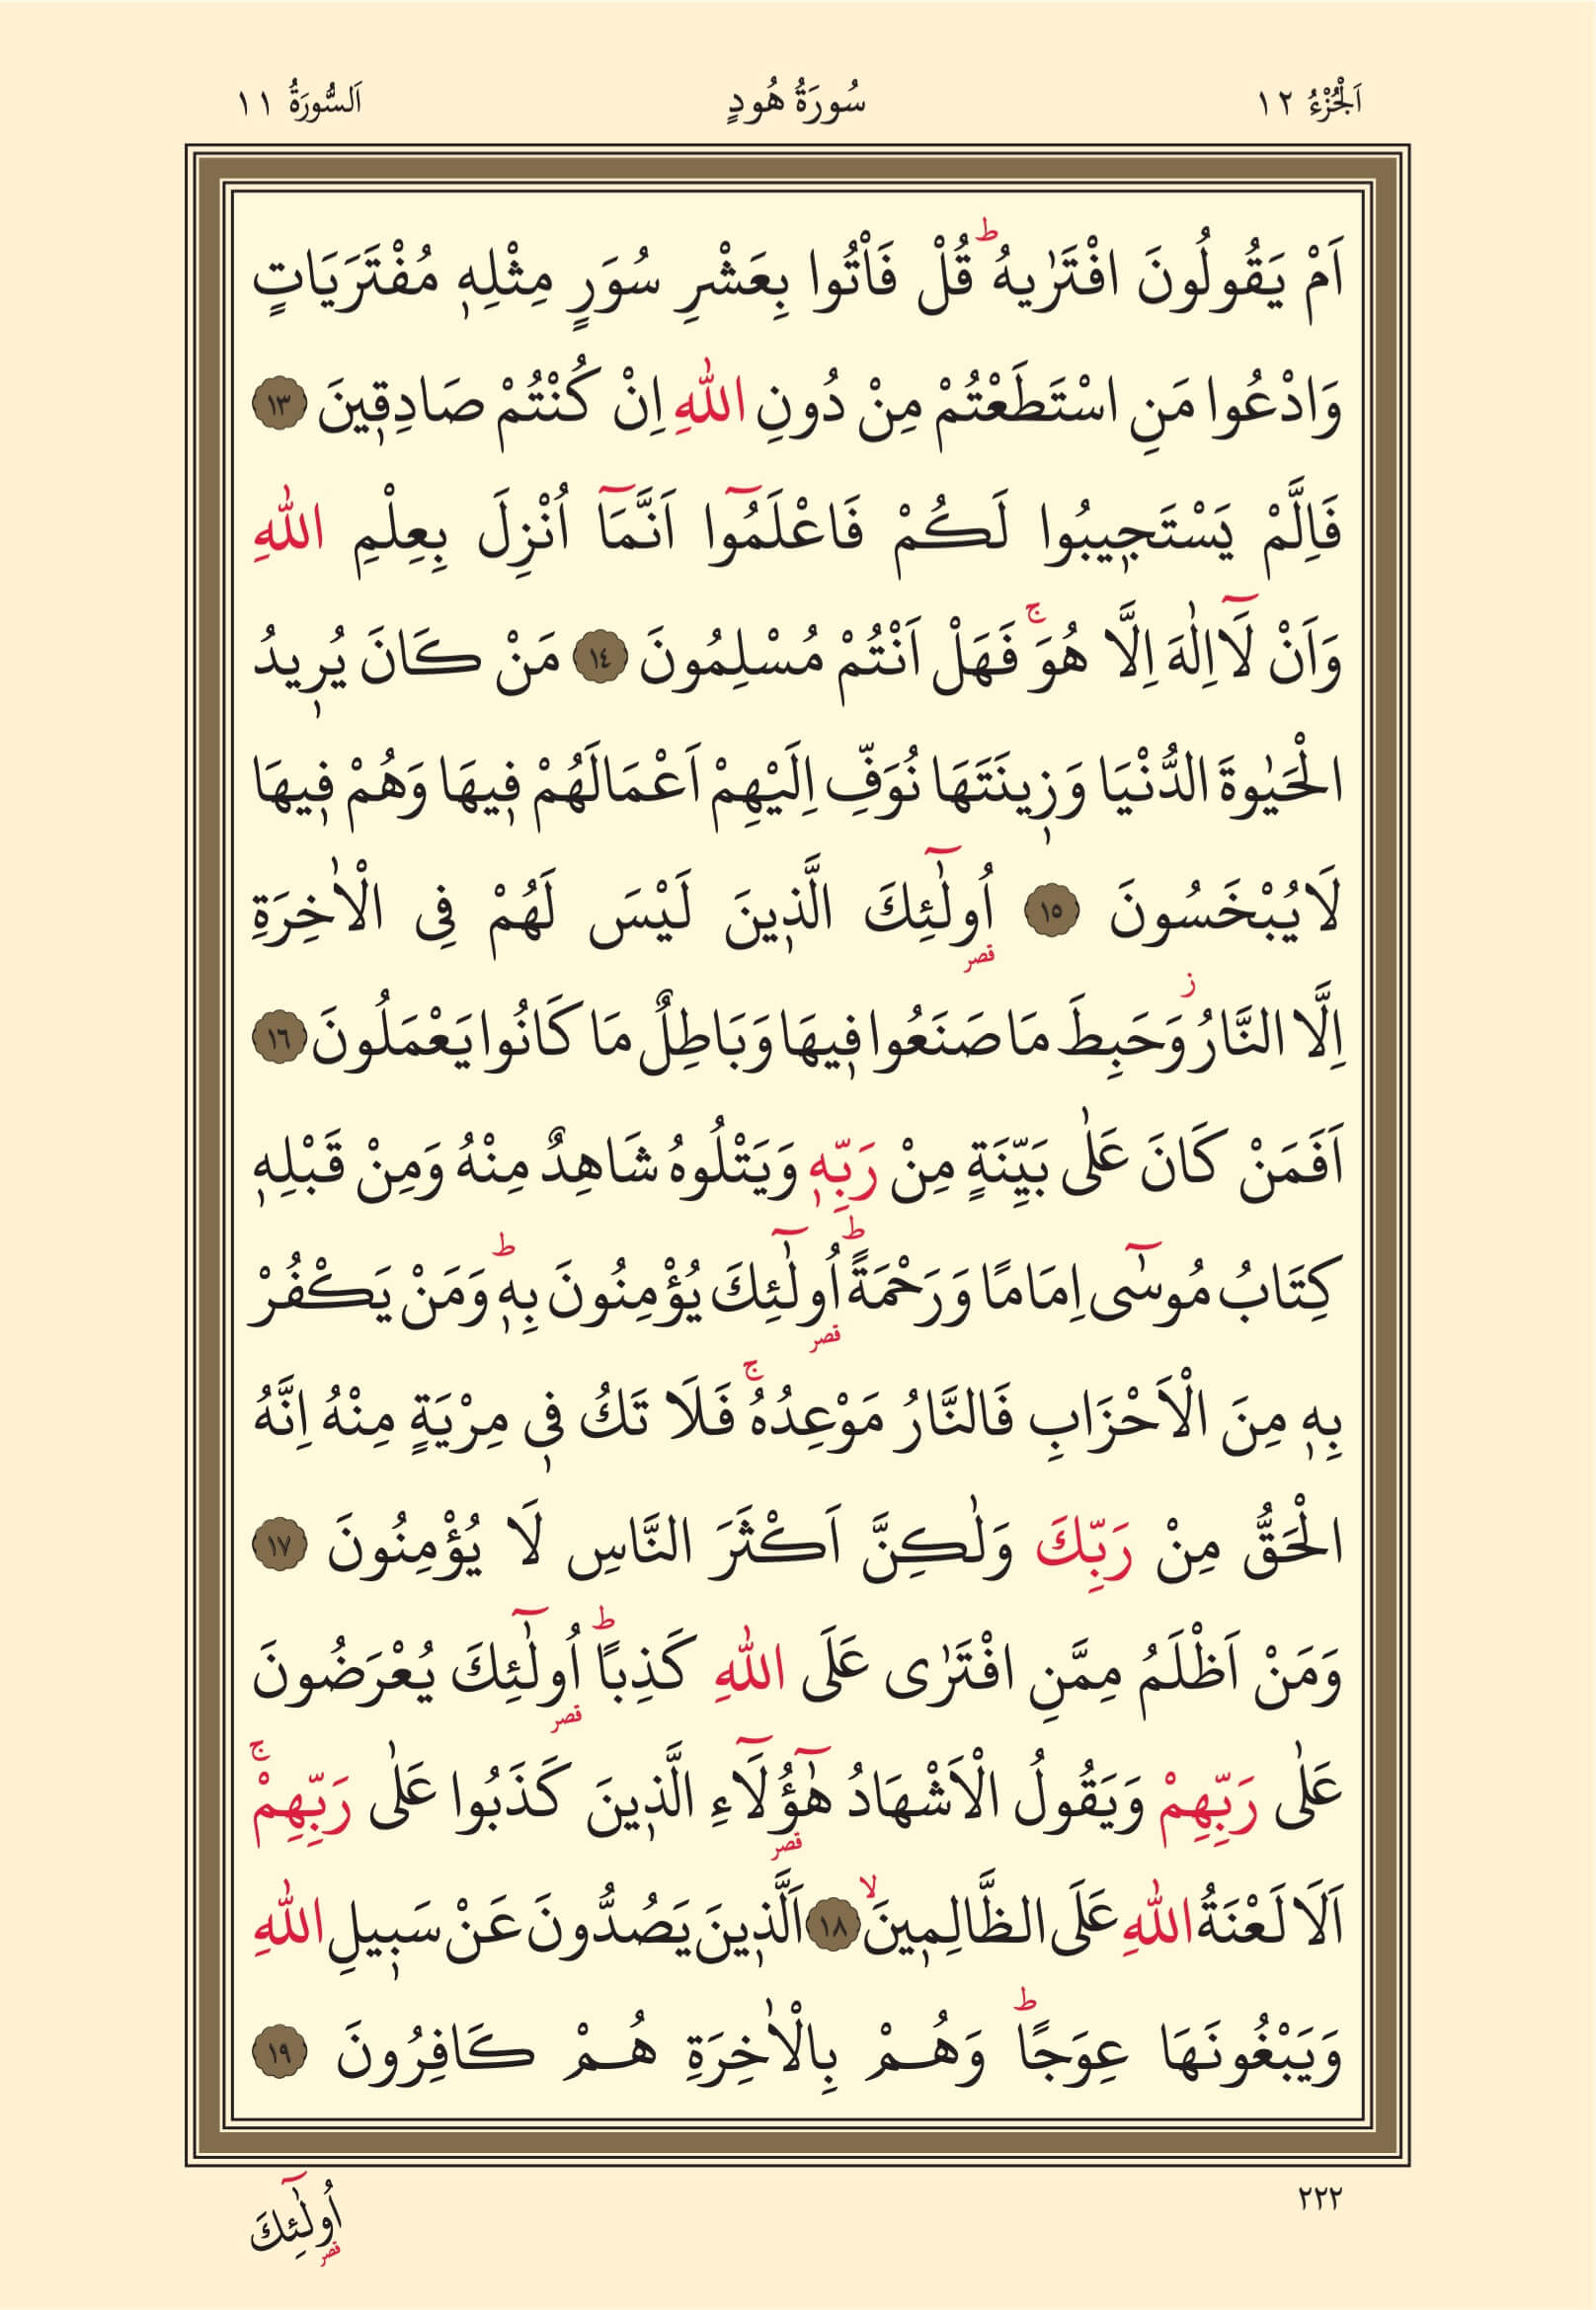 اَلْجُزْءُ ١٢
سُورَةُ هُودٍ
اَلسُّورَةُ ١١
اَمْ يَقُولُونَ افْتَرٰيهُ ؕ قُلْ فَاْتُوا بِعَشْرِ سُوَرٍ مِثْلِهٖ مُفْتَرَيَاتٍ
وَادْعُوا مَنِ اسْتَطَعْتُمْ مِنْ دُونِ اللّٰهِ اِنْ كُنْتُمْ صَادِقٖينَ ﴿١٣﴾
فَاِلَّمْ يَسْتَجٖيبُوا لَكُمْ فَاعْلَمُٓوا اَنَّمَٓا اُنْزِلَ بِعِلْمِ اللّٰهِ
وَاَنْ لَٓا اِلٰهَ اِلَّا هُوَ ۚ فَهَلْ اَنْتُمْ مُسْلِمُونَ ﴿١٤﴾ مَنْ كَانَ يُرٖيدُ
الْحَيٰوةَ الدُّنْيَا وَزٖينَتَهَا نُوَفِّ اِلَيْهِمْ اَعْمَالَهُمْ فٖيهَا وَهُمْ فٖيهَا
لَا يُبْخَسُونَ ﴿١٥﴾ اُولٰٓئِكَ الَّذٖينَ لَيْسَ لَهُمْ فِى الْاٰخِرَةِ
قصر
اِلَّا النَّارُ ز وَحَبِطَ مَا صَنَعُوا فٖيهَا وَبَاطِلٌ مَا كَانُوا يَعْمَلُونَ ﴿١٦﴾
اَفَمَنْ كَانَ عَلٰى بَيِّنَةٍ مِنْ رَبِّهٖ وَيَتْلُوهُ شَاهِدٌ مِنْهُ وَمِنْ قَبْلِهٖ
كِتَابُ مُوسٰٓى اِمَامًا وَرَحْمَةً ؕ اُولٰٓئِكَ يُؤْمِنُونَ بِهٖ ؕ وَمَنْ يَكْفُرْ
قصر
بِهٖ مِنَ الْاَحْزَابِ فَالنَّارُ مَوْعِدُهُ ۚ فَلَا تَكُ فٖى مِرْيَةٍ مِنْهُ اِنَّهُ
الْحَقُّ مِنْ رَبِّكَ وَلٰكِنَّ اَكْثَرَ النَّاسِ لَا يُؤْمِنُونَ ﴿١٧﴾
وَمَنْ اَظْلَمُ مِمَّنِ افْتَرٰى عَلَى اللّٰهِ كَذِباً ؕ اُولٰٓئِكَ يُعْرَضُونَ
قصر
عَلٰى رَبِّهِمْ وَيَقُولُ الْاَشْهَادُ هٰٓؤُلَٓاءِ الَّذٖينَ كَذَبُوا عَلٰى رَبِّهِمْ ۚ
قصر
اَلَا لَعْنَةُ اللّٰهِ عَلَى الظَّالِمٖينَ ۙ ﴿١٨﴾ اَلَّذٖينَ يَصُدُّونَ عَنْ سَبٖيلِ اللّٰهِ
وَيَبْغُونَهَا عِوَجًا ؕ وَهُمْ بِالْاٰخِرَةِ هُمْ كَافِرُونَ ﴿١٩﴾
٢٢٢
اُولٰٓئِكَ
قصر